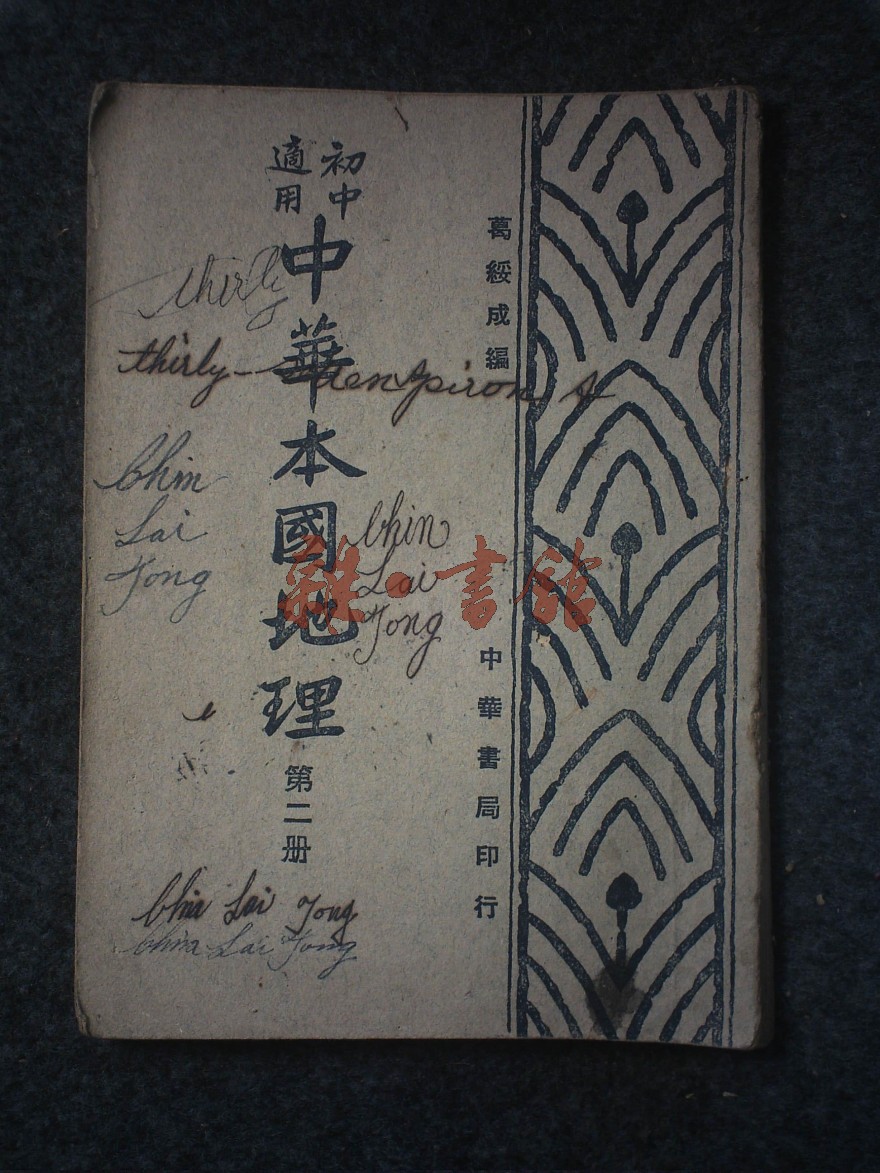 初中
適用
中華本國地理
第二册
葛綏成編
中華書局印行
thirly
thirly-
Chin
Lai
Tong
Chin
Lai
Tong
Chin Lai Tong
Chin Lai Tong
雜·書館